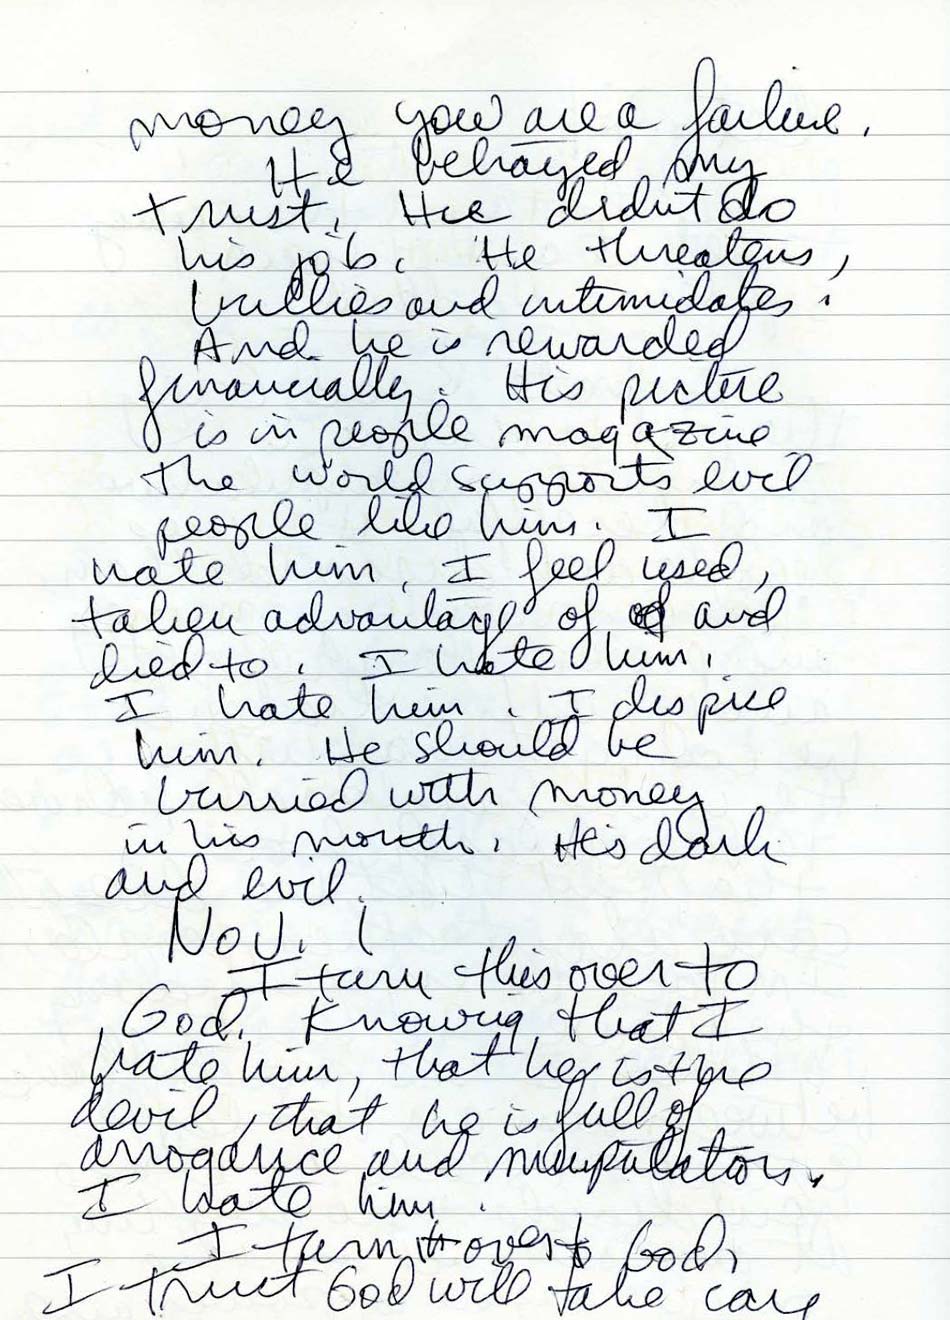 money you are a failure.
He betrayed my
trust. He didn't do
his job. He threatens,
bullies and intimidates.
And he is rewarded
financially. His picture
is in people magazine
The world supports evil
people like him. I
hate him. I feel used,
taken advantage of and
lied to. I hate him.
I hate him. I despise
him. He should be
burried with money
in his mouth. His dark
and evil.
Now. I
I turn this over to
God. Knowing that I
hate him, that he is the
devil, that he is full of
arrogance and manipulation.
I hate him.
I turn it over to God,
I trust God will take care